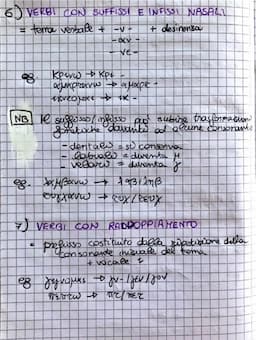 6) VERBI CON SUFFISSI E INFISSI NASALI
= tema verbale + -ν- + desinenza
-αν-
-νε-
eg. κρινω → κρι-
αμαρτανω → αμαρτ-
ικνεομαι → ικ-
NB Il suffisso/infisso può subire trasformazioni
fonetiche davanti ad alcune consonanti
- dentale = si conserva
- labiale = diventa μ
- velare = diventa γ
eg. λαμβανω → λαβ/ληβ
τυγχανω → τυχ/τευχ
7) VERBI CON RADDOPPIAMENTO
= prefisso costituito dalla ripetizione della
consonante iniziale del tema
+ vocale ι
eg γιγνομαι → γν-/γεν/γον
πιπτω → πτ/πετ